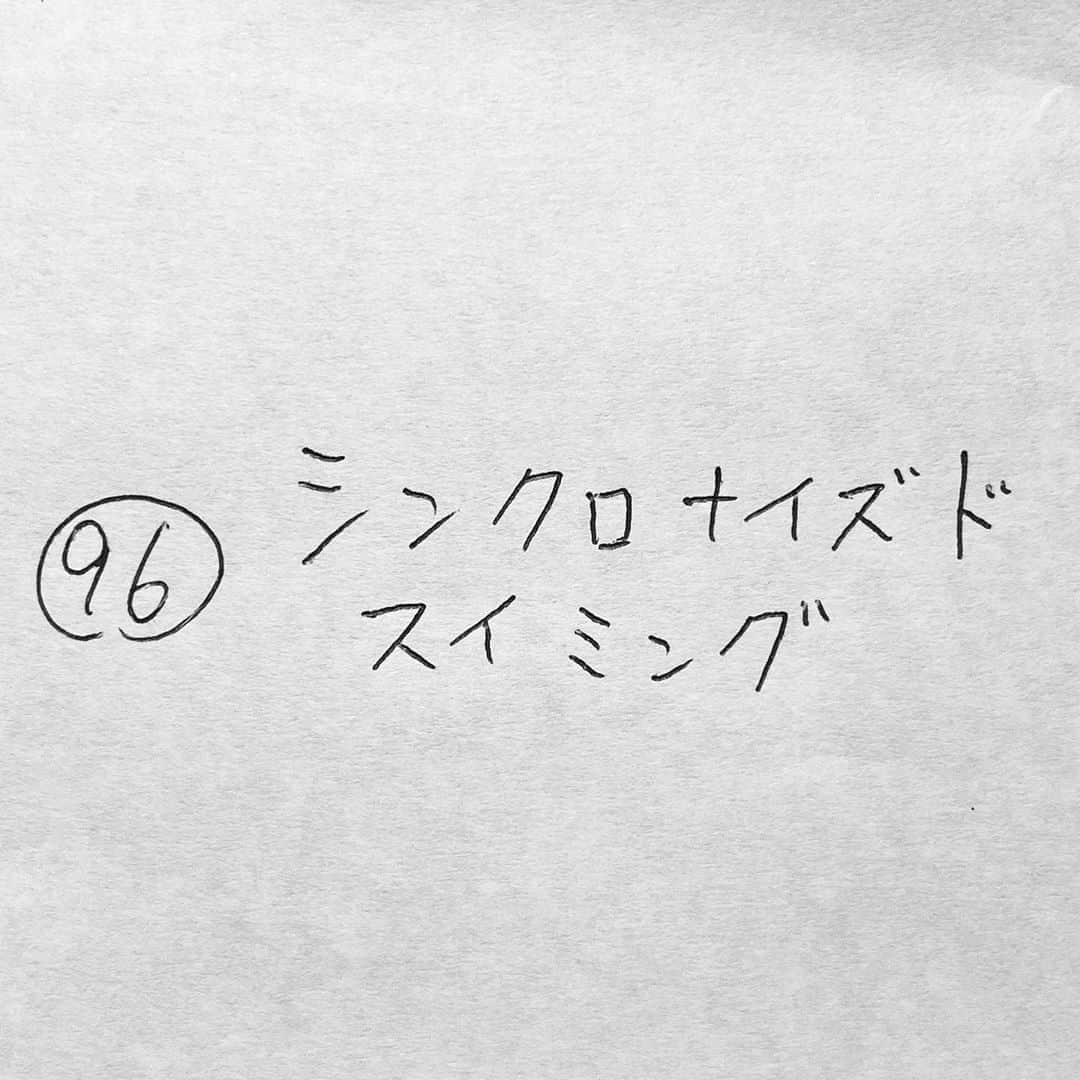 96 シンクロナイズド
スイミング